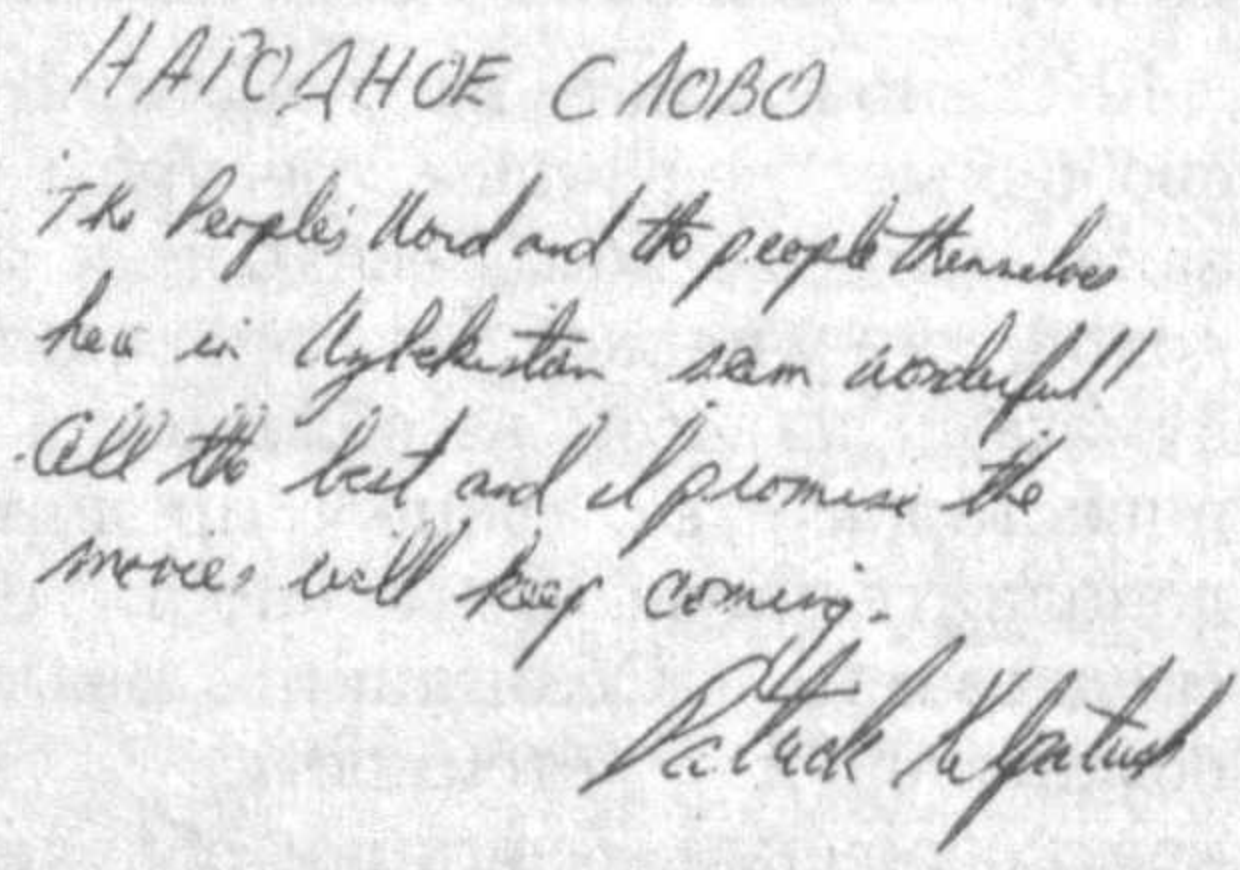 НАРОДНОЕ СЛОВО
The People's Word and the people themselves
here in Uzbekistan seem wonderful!
All the best and I promise the
movies will keep coming.
Patrick Kilpatrick